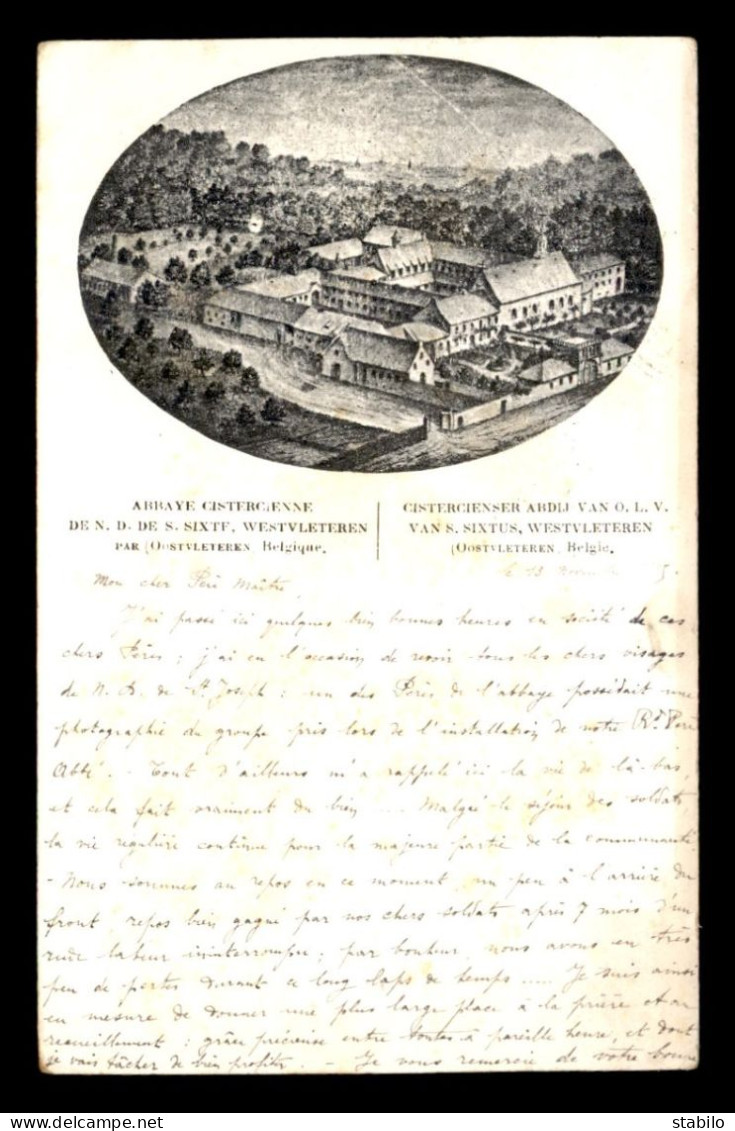 ABBAYE CISTERCIENNE
DE N. D. DE S. SIXTE, WESTVLETEREN
PAR (OOSTVLETEREN) Belgique.
CISTERCIENSER ABDIJ VAN O. L. V.
VAN S. SIXTUS, WESTVLETEREN
(OOSTVLETEREN) Belgie.
le 13 Novembre
Mon cher Père Maître,
J'ai passé ici quelques bien bonnes heures en société de ces
chers Pères ; j'ai eu l'occasion de revoir tous les chers visages
de N. D. de St Joseph : un des Pères de l'abbaye possédait une
photographie du groupe pris lors de l'installation de notre Rd Père
Abbé. - Tout d'ailleurs m'a rappelé ici la vie de là-bas,
et cela fait vraiment du bien .... Malgré le séjour des soldats,
la vie régulière continue pour la majeure partie de la communauté.
- Nous sommes au repos en ce moment, un peu à l'arrière du
front, repos bien gagné par nos chers soldats après 7 mois d'un
rude labeur ininterrompu ; par bonheur, nous avons eu très
peu de pertes durant ce long laps de temps .... Je suis ainsi
en mesure de donner une plus large place à la prière et au
recueillement : grâce précieuse entre toutes à pareille heure, et dont
je vais tâcher de bien profiter. - Je vous remercie de votre bonne
stabilo
Delcampe.net